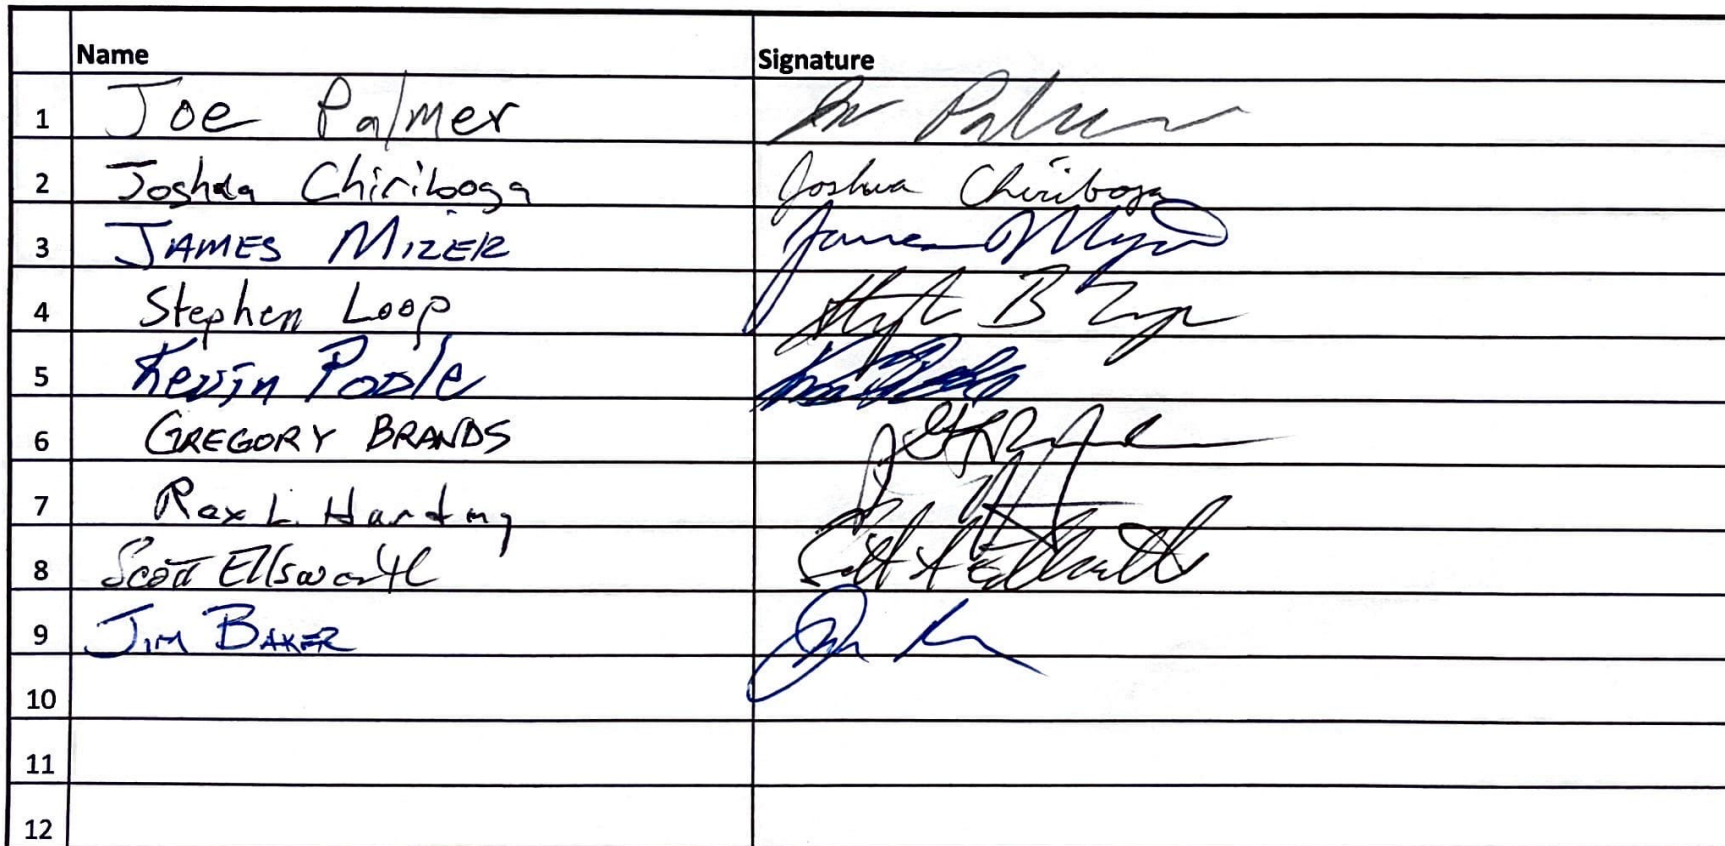 Name Signature
1 Joe Palmer Joe Palmer
2 Joshua Chiriboga Joshua Chiriboga
3 JAMES MIZER James Mizer
4 Stephen Loop Stephen B Loop
5 Kevin Poole
6 GREGORY BRANDS
7 Rex L. Harding
8 Scott Ellsworth Scott A Ellsworth
9 JIM BAKER
10
11
12